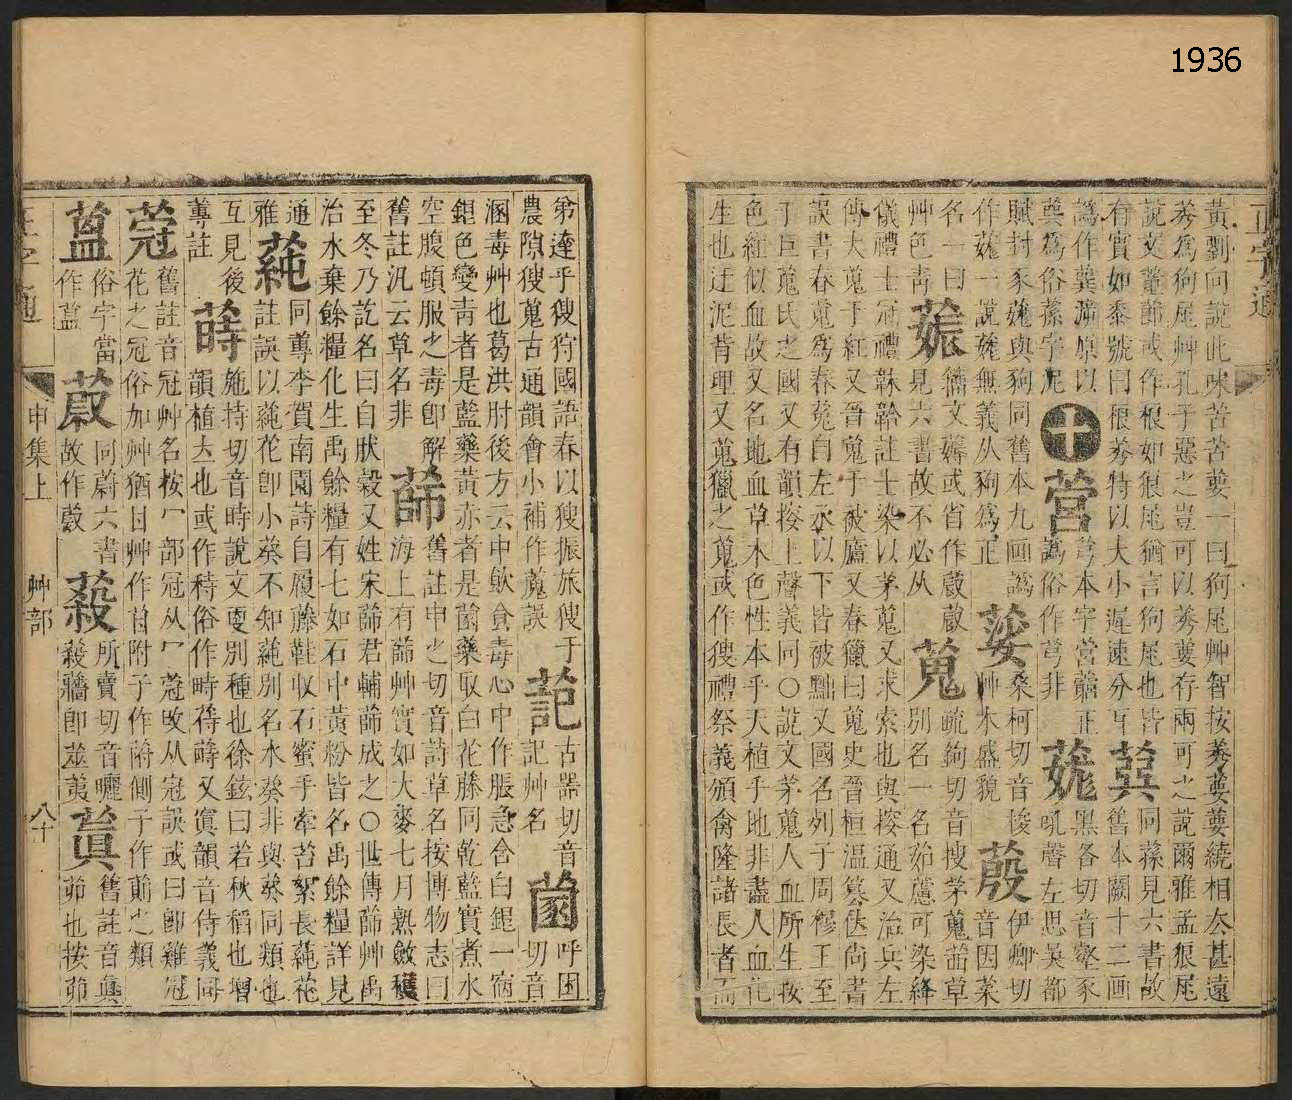 1936
正字通
黃劉向說此味苦苦葽一曰狗尾艸智按莠葽葽繞相厺甚遠
莠爲狗尾艸孔子惡之豈可以莠葽存兩可之說爾雅孟狼尾
說文董蓈或作稂如狼尾猶言狗尾也皆
有實如黍號曰稂莠特以大小遲速分耳 蓂 同蓀見六書故
舊本闕十二画
譌作蓂溯原以
蓂爲俗蓀字尼 十 營 芎本字營藭正
譌俗作芎非 蔙 黑各切音壑豕
吼聲左思吳都
賦封豕蔙與狗同舊本九画譌
作蔙一說蔙無義从豿爲正 蓌 桑柯切音梭
艸木盛貌 蒑 伊卿切
音因菜
名一曰
艸色靑 蔉 籒文薅或省作蔉蔉
見六書故不必从 蒐 疏鉤切音搜茅蒐茹草
別名一名茹藘可染絳
儀禮士冠禮韎韐註士染以茅蒐又求索也與㨮通又治兵左
傳大蒐于紅又晉蒐于被廬又春獵曰蒐史晉桓溫篡伕尙書
誤書春蒐爲春菟自左丞以下皆被黜又國名列子周穆王至
于巨蒐氏之國又有韻㨮上聲義同〇說文茅蒐人血所生按
色紅似血故又名地血草木色性本乎天植乎地非盡人血化
生也迂泥背理又蒐獵之蒐或作獀禮祭義頒禽隆諸長者而
弟達乎獀狩國語春以獀振旅獀于
農隙獀蒐古通韻會小補作蒐誤 𦶉 古器切音
記艸名 蔨 呼困
切音
溷毒艸也葛洪肘後方云中飮食毒心中作脹急含白銀一宿
銀色變靑者是藍藥黃赤者是蔨藥取白花藤同乾藍實煮水
空腹頓服之毒卽解
舊註汎云草名非 蒒 舊註申之切音詩草名按博物志曰
海上有蒒艸實如大麥七月熟斂穫
至冬乃訖名曰自肰穀又姓宋蒒君輔蒒成之〇世傳蒒艸禹
治水棄餘糧化生禹餘糧有七如石中黃粉皆名禹餘糧詳見
通
雅 蒓 同蓴李賀南園詩自履藤鞋收石蜜手牽苔絮長蒓花
註誤以蒓花卽小葵不知蒓別名水葵非與葵同類也
互見後
蓴註 蒔 施持切音時說文更別種也徐鉉曰若秋稻也增
韻植立也或作秲俗作時蒔蒔又寘韻音侍義同
蒄 舊註音冠艸名按冖部冠从冖蒄攺从冠誤或曰卽雞冠
花之冠俗加艸猶甘艸作苷附子作萷側子作萴之類
蒀 俗字當
作薀 蔚 同蔚六書
故作蔚 蔱 所賣切音曬
蔱蘠卽蕪荑 蒷 舊註音輿
茆也按茆
正字通
申集上
艸部
八十